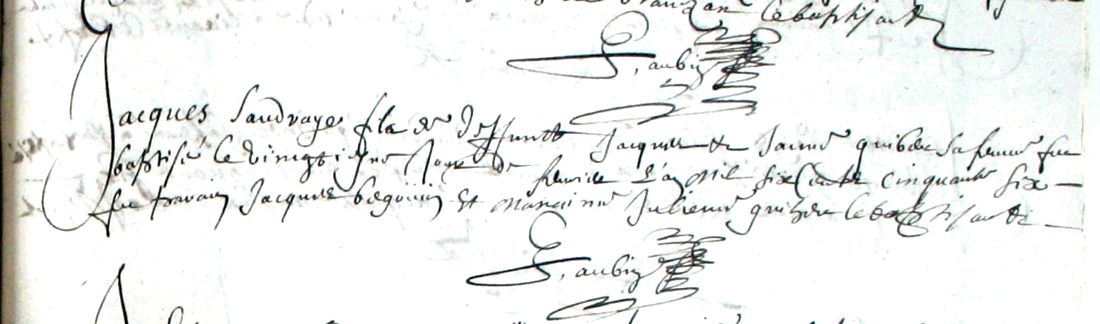 le baptisant
F. aubin
Jacques Landrayes filz de deffunct Jacques et Janne quiber sa femme fut
baptisé le vingtiesme Jour de febvrier l'an mil six cents cinquante six
fut parain Jacques begouin et maraine Julienne quiber le baptisant
F. aubin